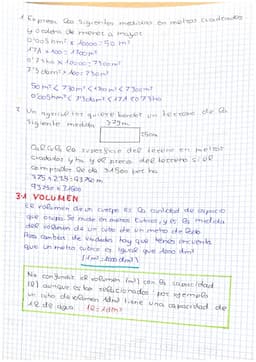 1. Express los siguientes medidas en metros cuadrados
y ordena de menor a mayor
0'005 hm² x 10000 = 50 m²
17A x 100 = 1700 m²
0'73ha x 10000 = 7300 m²
7'3 dam² x 100 = 730 m²
50 m² < 730 m² < 1700 m² < 7300 m²
0'005hm² < 7'3dam² < 17A < 0'73ha
2. Un agricultor quiere vender un terreno de la
siguiente medida
375m
Calcula la superficie del terreno en metros
cuadrados y ha y el precio del terreno si el
comprador le da 3.500 por ha
3.1 VOLUMEN
El volumen de un cuerpo es la cantidad de espacio
que ocupa. Se mide en metros cúbicos, y es la medida
del volumen de un cubo de un metro de lado
Para cambiar de unidades hay que tener en cuenta
que un metro cúbico es igual que 1000 dm³
(1m³ = 1000 dm³)
No confundir el volumen (m³) con la capacidad
(l) aunque estan relacionados: por ejemplo
un cubo de volumen 1dm³ tiene una capacidad de
1l de agua. 1l = 1dm³